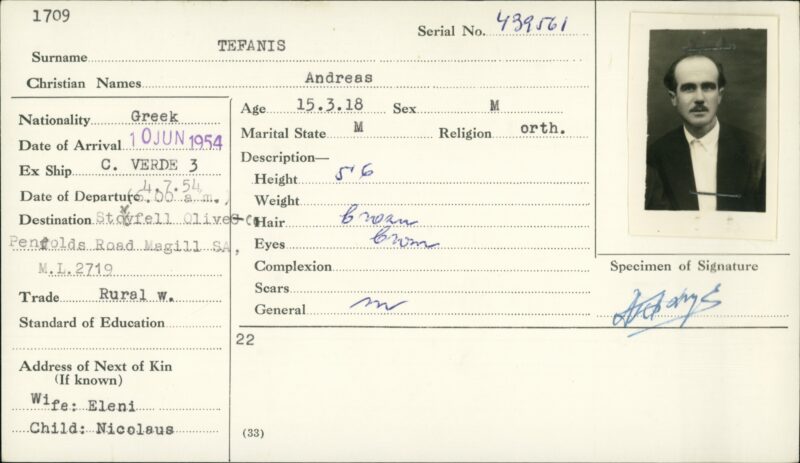 1709
Serial No. 439561
Surname TEFANIS
Christian Names Andreas
Nationality Greek
Date of Arrival 10 JUN 1954
Ex Ship C. VERDE 3
Date of Departure 4.7.54 (6.00 a.m.)
Destination Stoyfell Olives Co
Penfolds Road Magill SA,
M.L.2719
Trade Rural w.
Standard of Education
Address of Next of Kin
(If known)
Wife: Eleni
Child: Nicolaus
Age 15.3.18 Sex M
Marital State M Religion orth.
Description—
Height 5'6
Weight
Hair brown
Eyes brown
Complexion
Scars
General m
22
(33)
Specimen of Signature